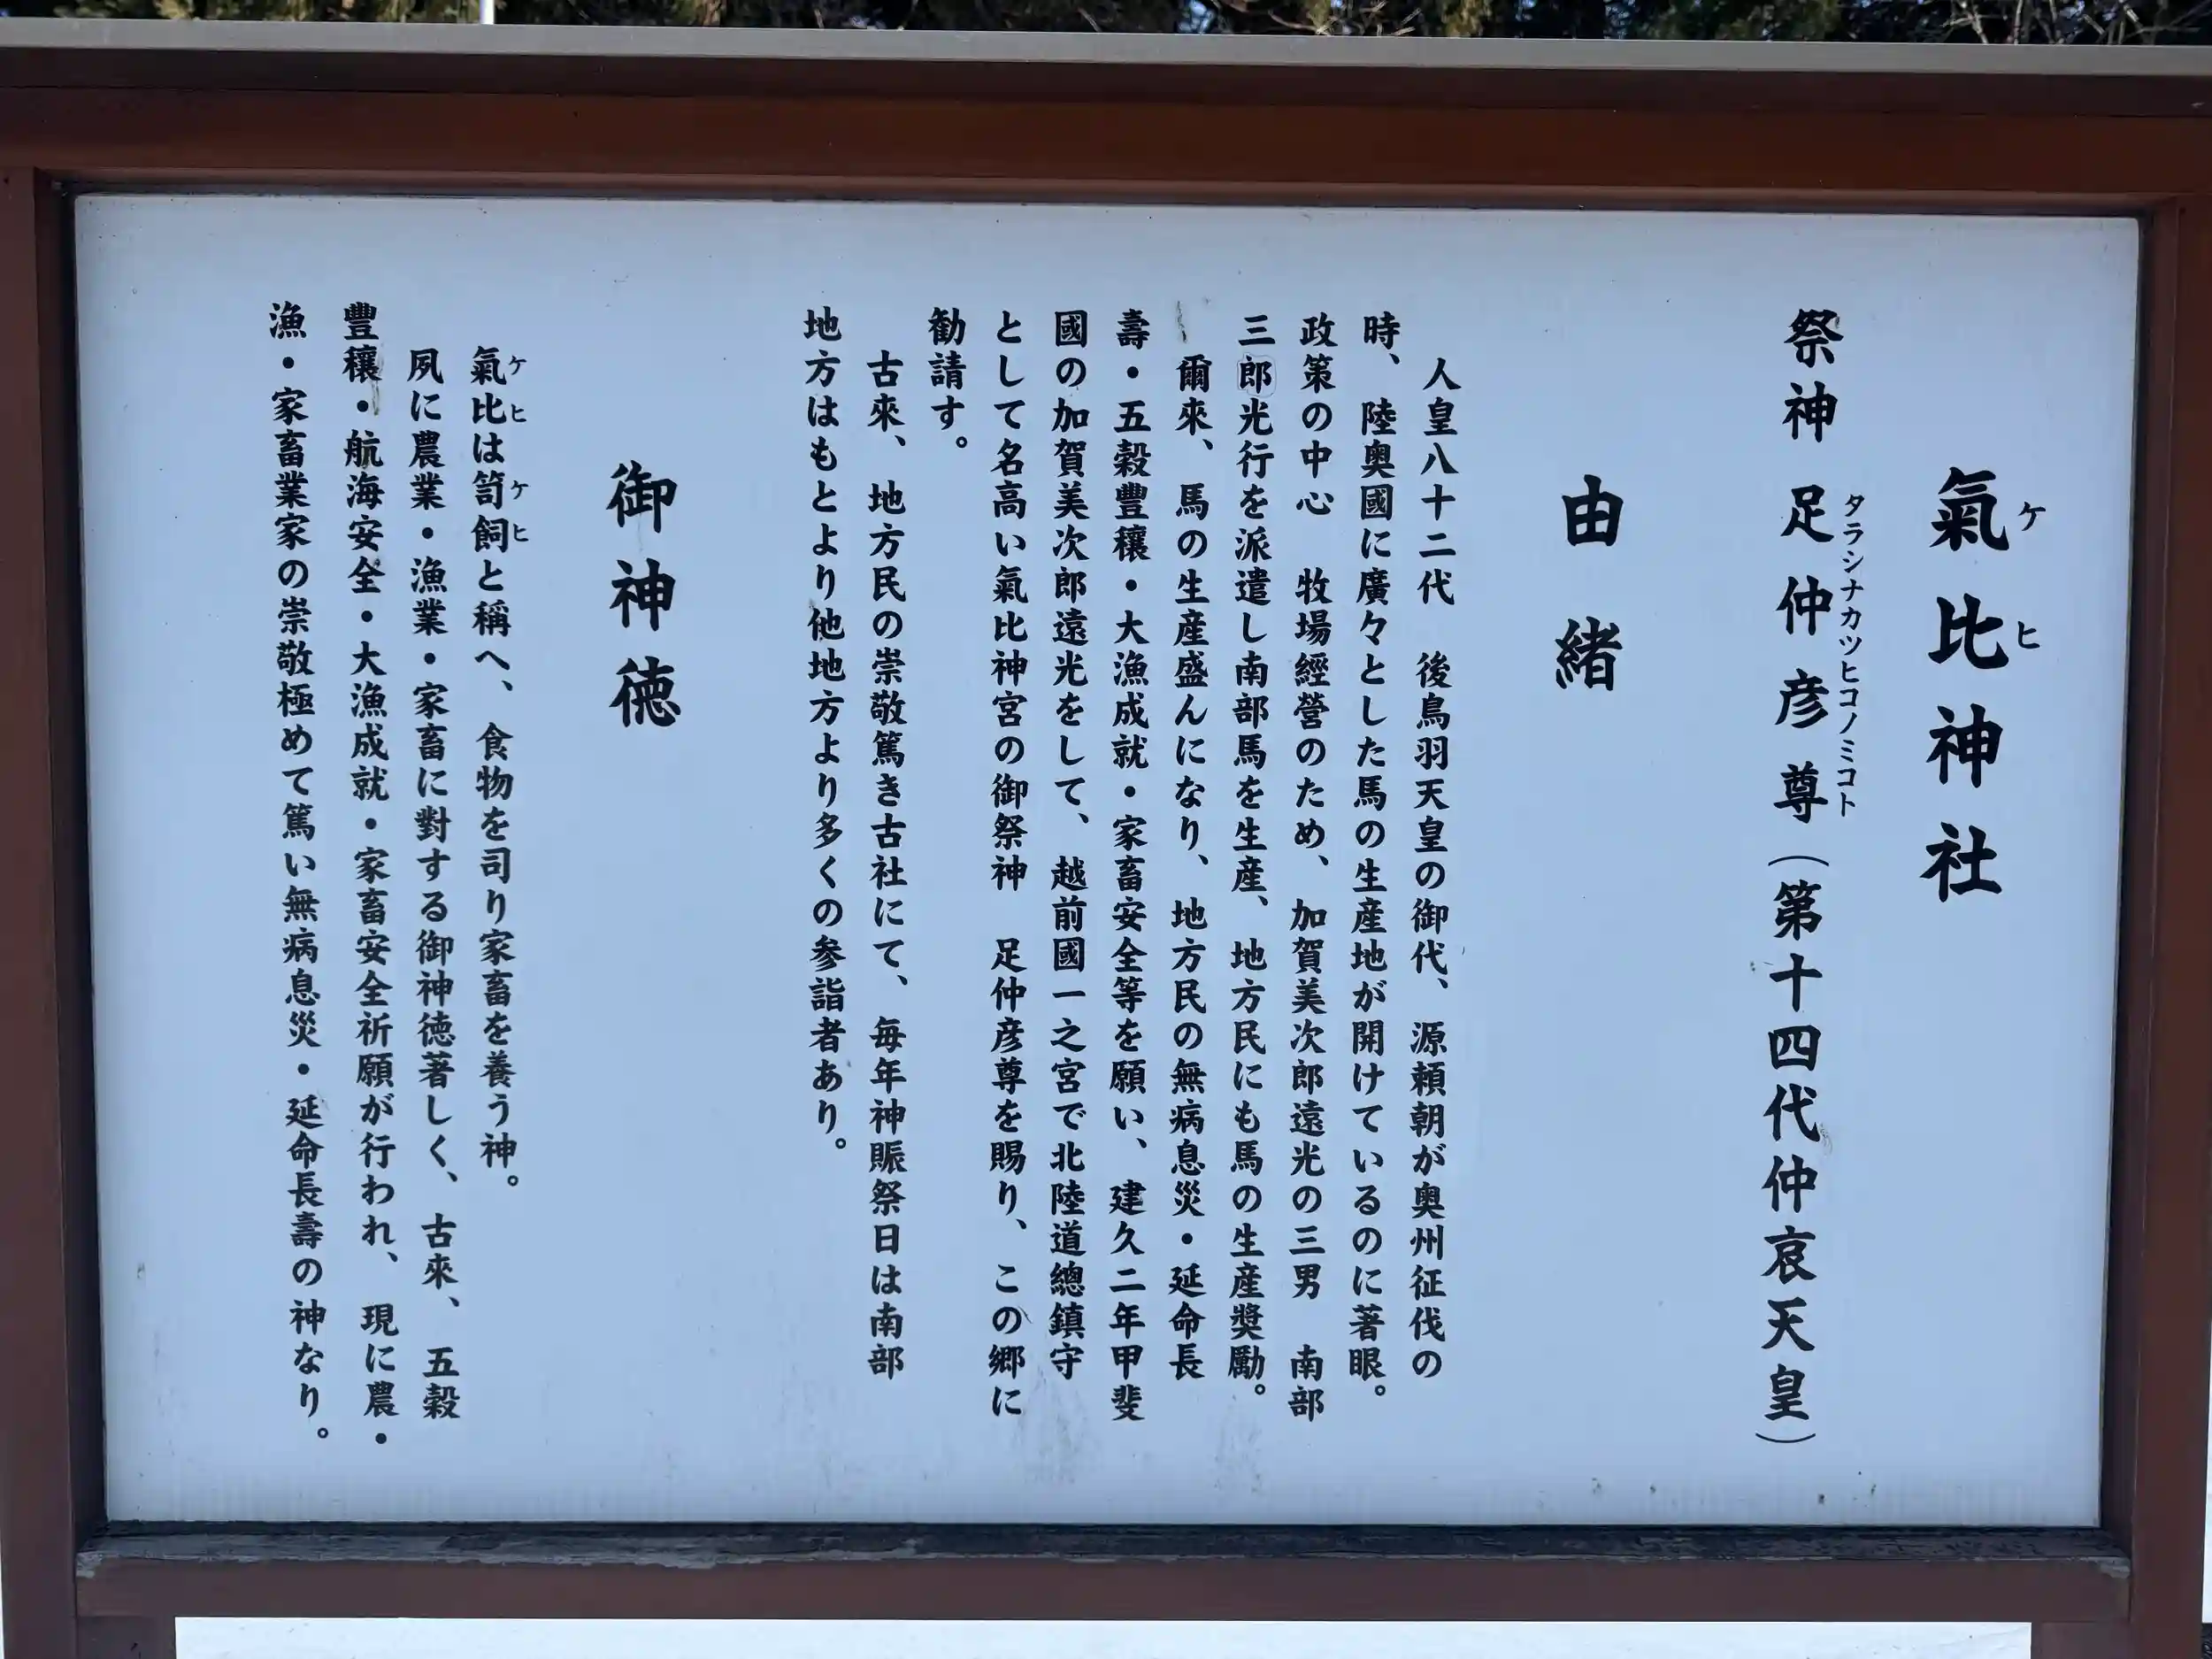 氣比神社
ケヒ
祭神 足仲彦尊（第十四代仲哀天皇）
タラシナカツヒコノミコト
由緒
人皇八十二代 後鳥羽天皇の御代、源頼朝が奥州征伐の
時、陸奥國に廣々とした馬の生産地が開けているのに著眼。
政策の中心 牧場經營のため、加賀美次郎遠光の三男 南部
三郎光行を派遣し南部馬を生産、地方民にも馬の生産奬勵。
爾來、馬の生産盛んになり、地方民の無病息災・延命長
壽・五穀豐穰・大漁成就・家畜安全等を願い、建久二年甲斐
國の加賀美次郎遠光をして、越前國一之宮で北陸道總鎮守
として名高い氣比神宮の御祭神 足仲彦尊を賜り、この郷に
勧請す。
古來、地方民の崇敬篤き古社にて、毎年神賑祭日は南部
地方はもとより他地方より多くの参詣者あり。
御神徳
氣比は笥飼と稱へ、食物を司り家畜を養う神。
ケヒ ケヒ
夙に農業・漁業・家畜に對する御神徳著しく、古來、五穀
豐穰・航海安全・大漁成就・家畜安全祈願が行われ、現に農・
漁・家畜業家の崇敬極めて篤い無病息災・延命長壽の神なり。